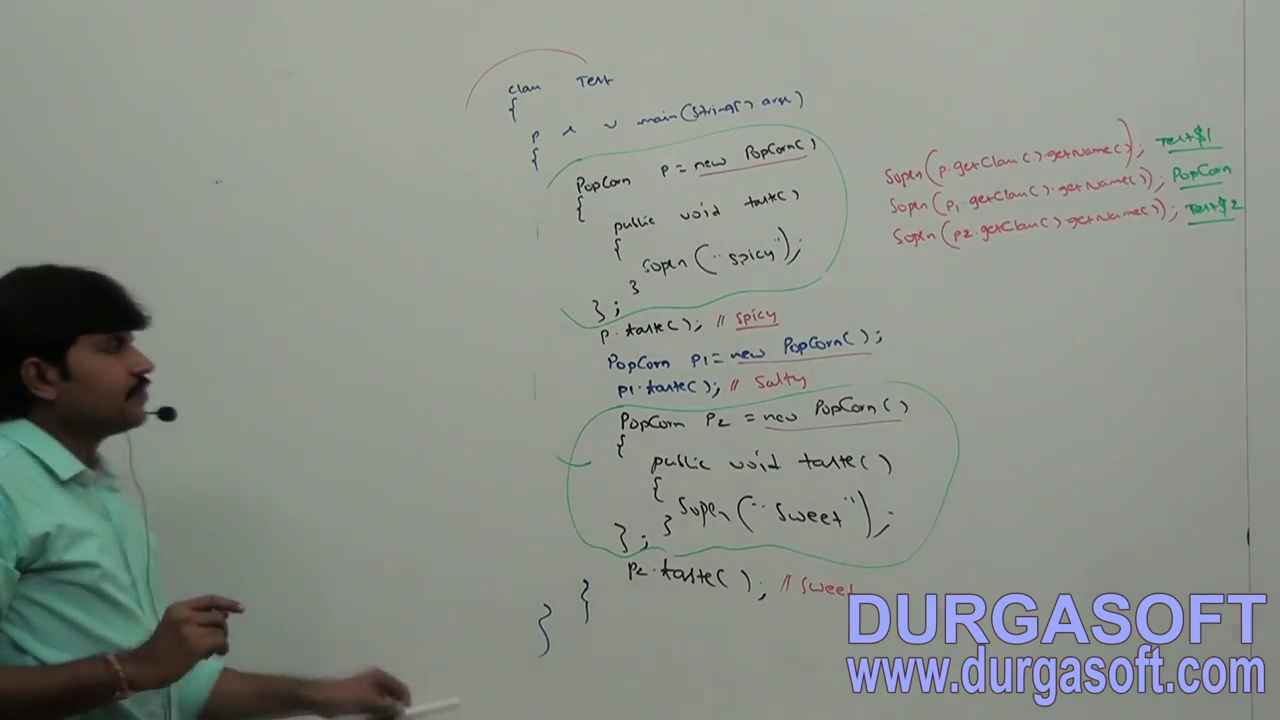 class Test
{
p s v main(String[] args)
{
PopCorn p = new PopCorn()
{
public void taste()
{
Sopln("spicy");
}
};
p.taste(); // Spicy
PopCorn p1 = new PopCorn();
p1.taste(); // Salty
PopCorn p2 = new PopCorn()
{
public void taste()
{
Sopln("Sweet");
}
};
p2.taste(); // Sweet
}
}
Sopln(p.getClass().getName()); Test$1
Sopln(p1.getClass().getName()); PopCorn
Sopln(p2.getClass().getName()); Test$2
DURGASOFT
www.durgasoft.com